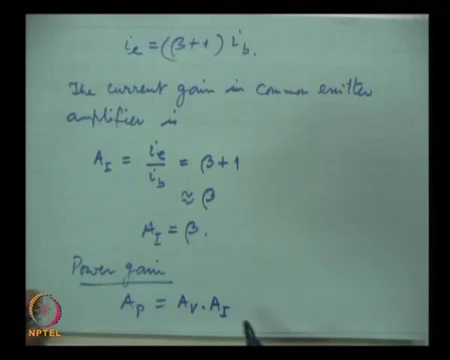 i_e = (β+1) i_b.
The current gain in common emitter
amplifier is
A_I = i_e/i_b = β+1
≈ β
A_I = β.
Power gain
A_P = A_V . A_I
NPTEL